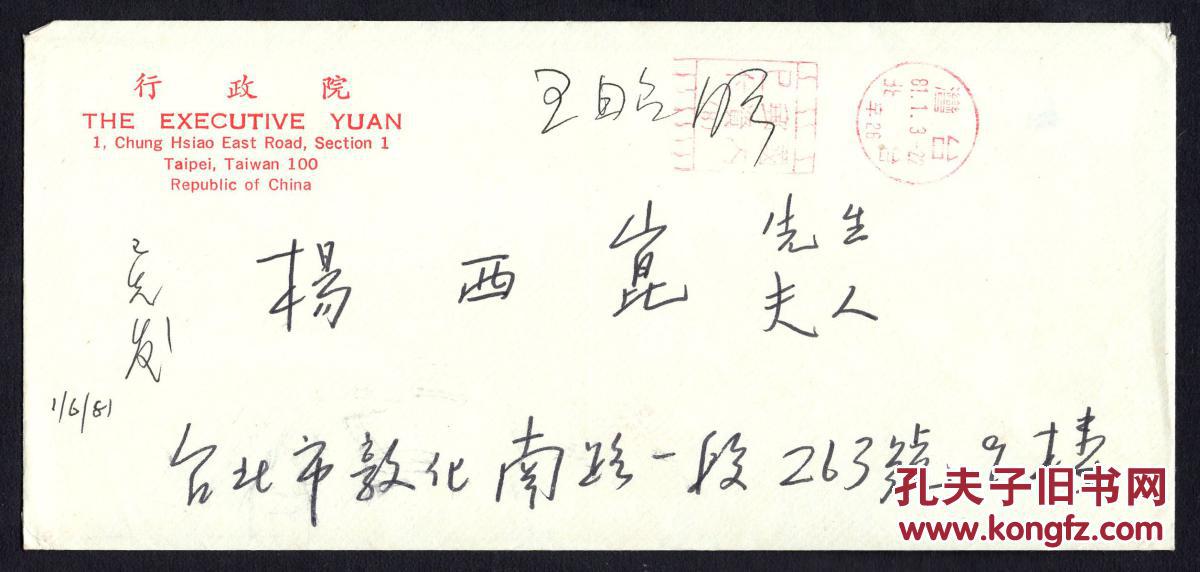 行 政 院
THE EXECUTIVE YUAN
1, Chung Hsiao East Road, Section 1
Taipei, Taiwan 100
Republic of China
王昭明
台灣
81.1.3-22
台北
楊 西 崑 先生
夫人
已先发
1/6/81
台北市敦化南路一段263號 9楼
孔夫子旧书网
www.kongfz.com